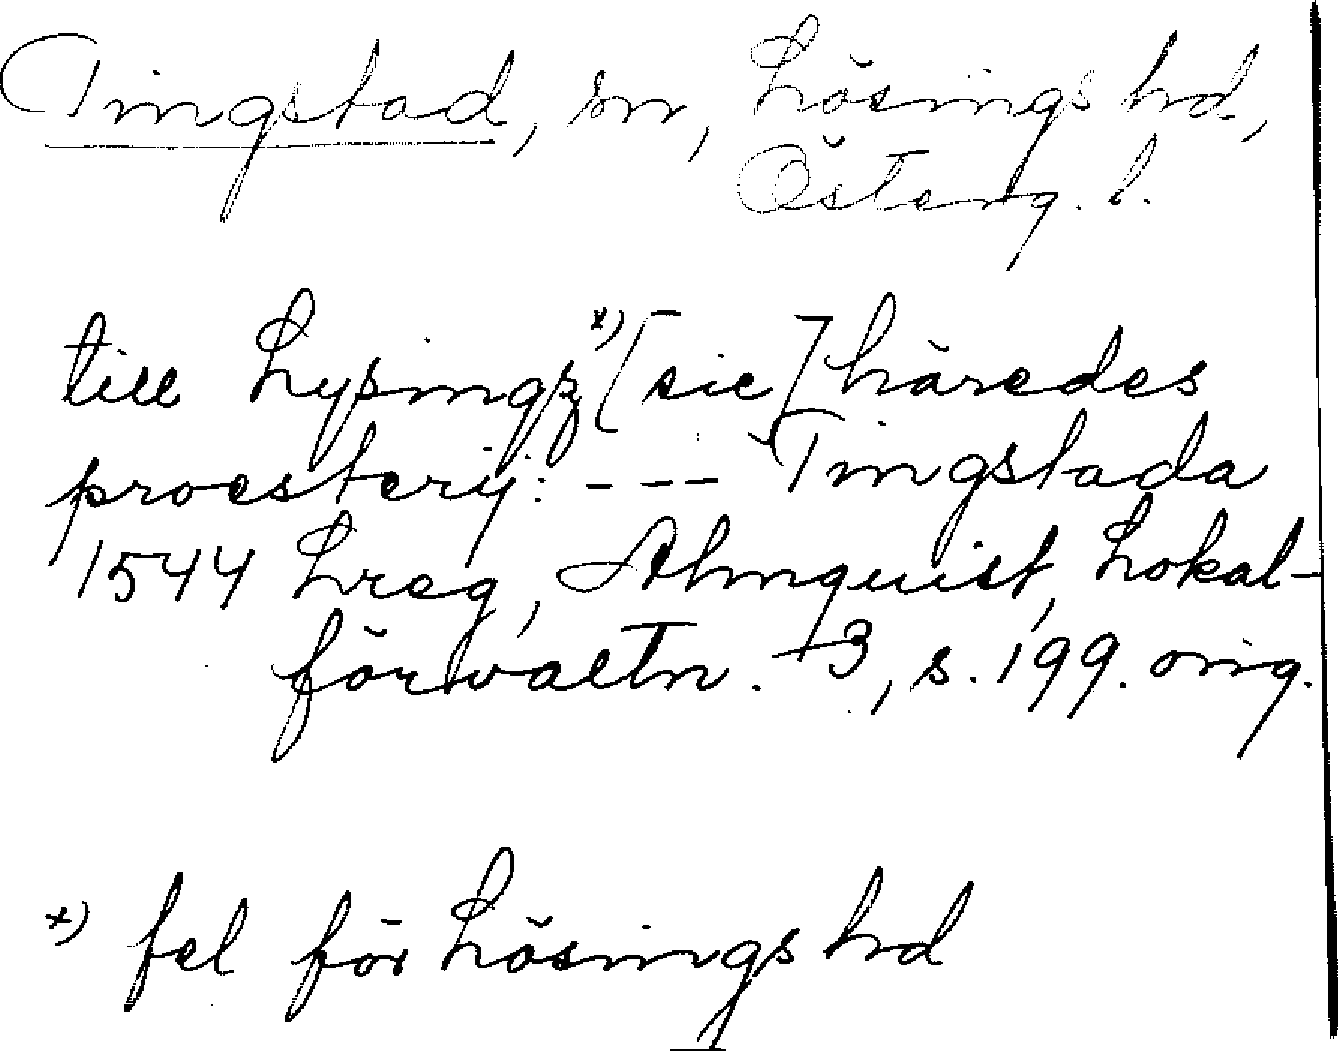 Tingstad, sn, Lösings hd,
Österg. l.
till Lysingz *) [sic] häredes
proestery: --- Tingstada
1544 Lreg, Almquist, Lokal-
förvaltn. 3, s. 199. orig.
*) fel för Lösings hd